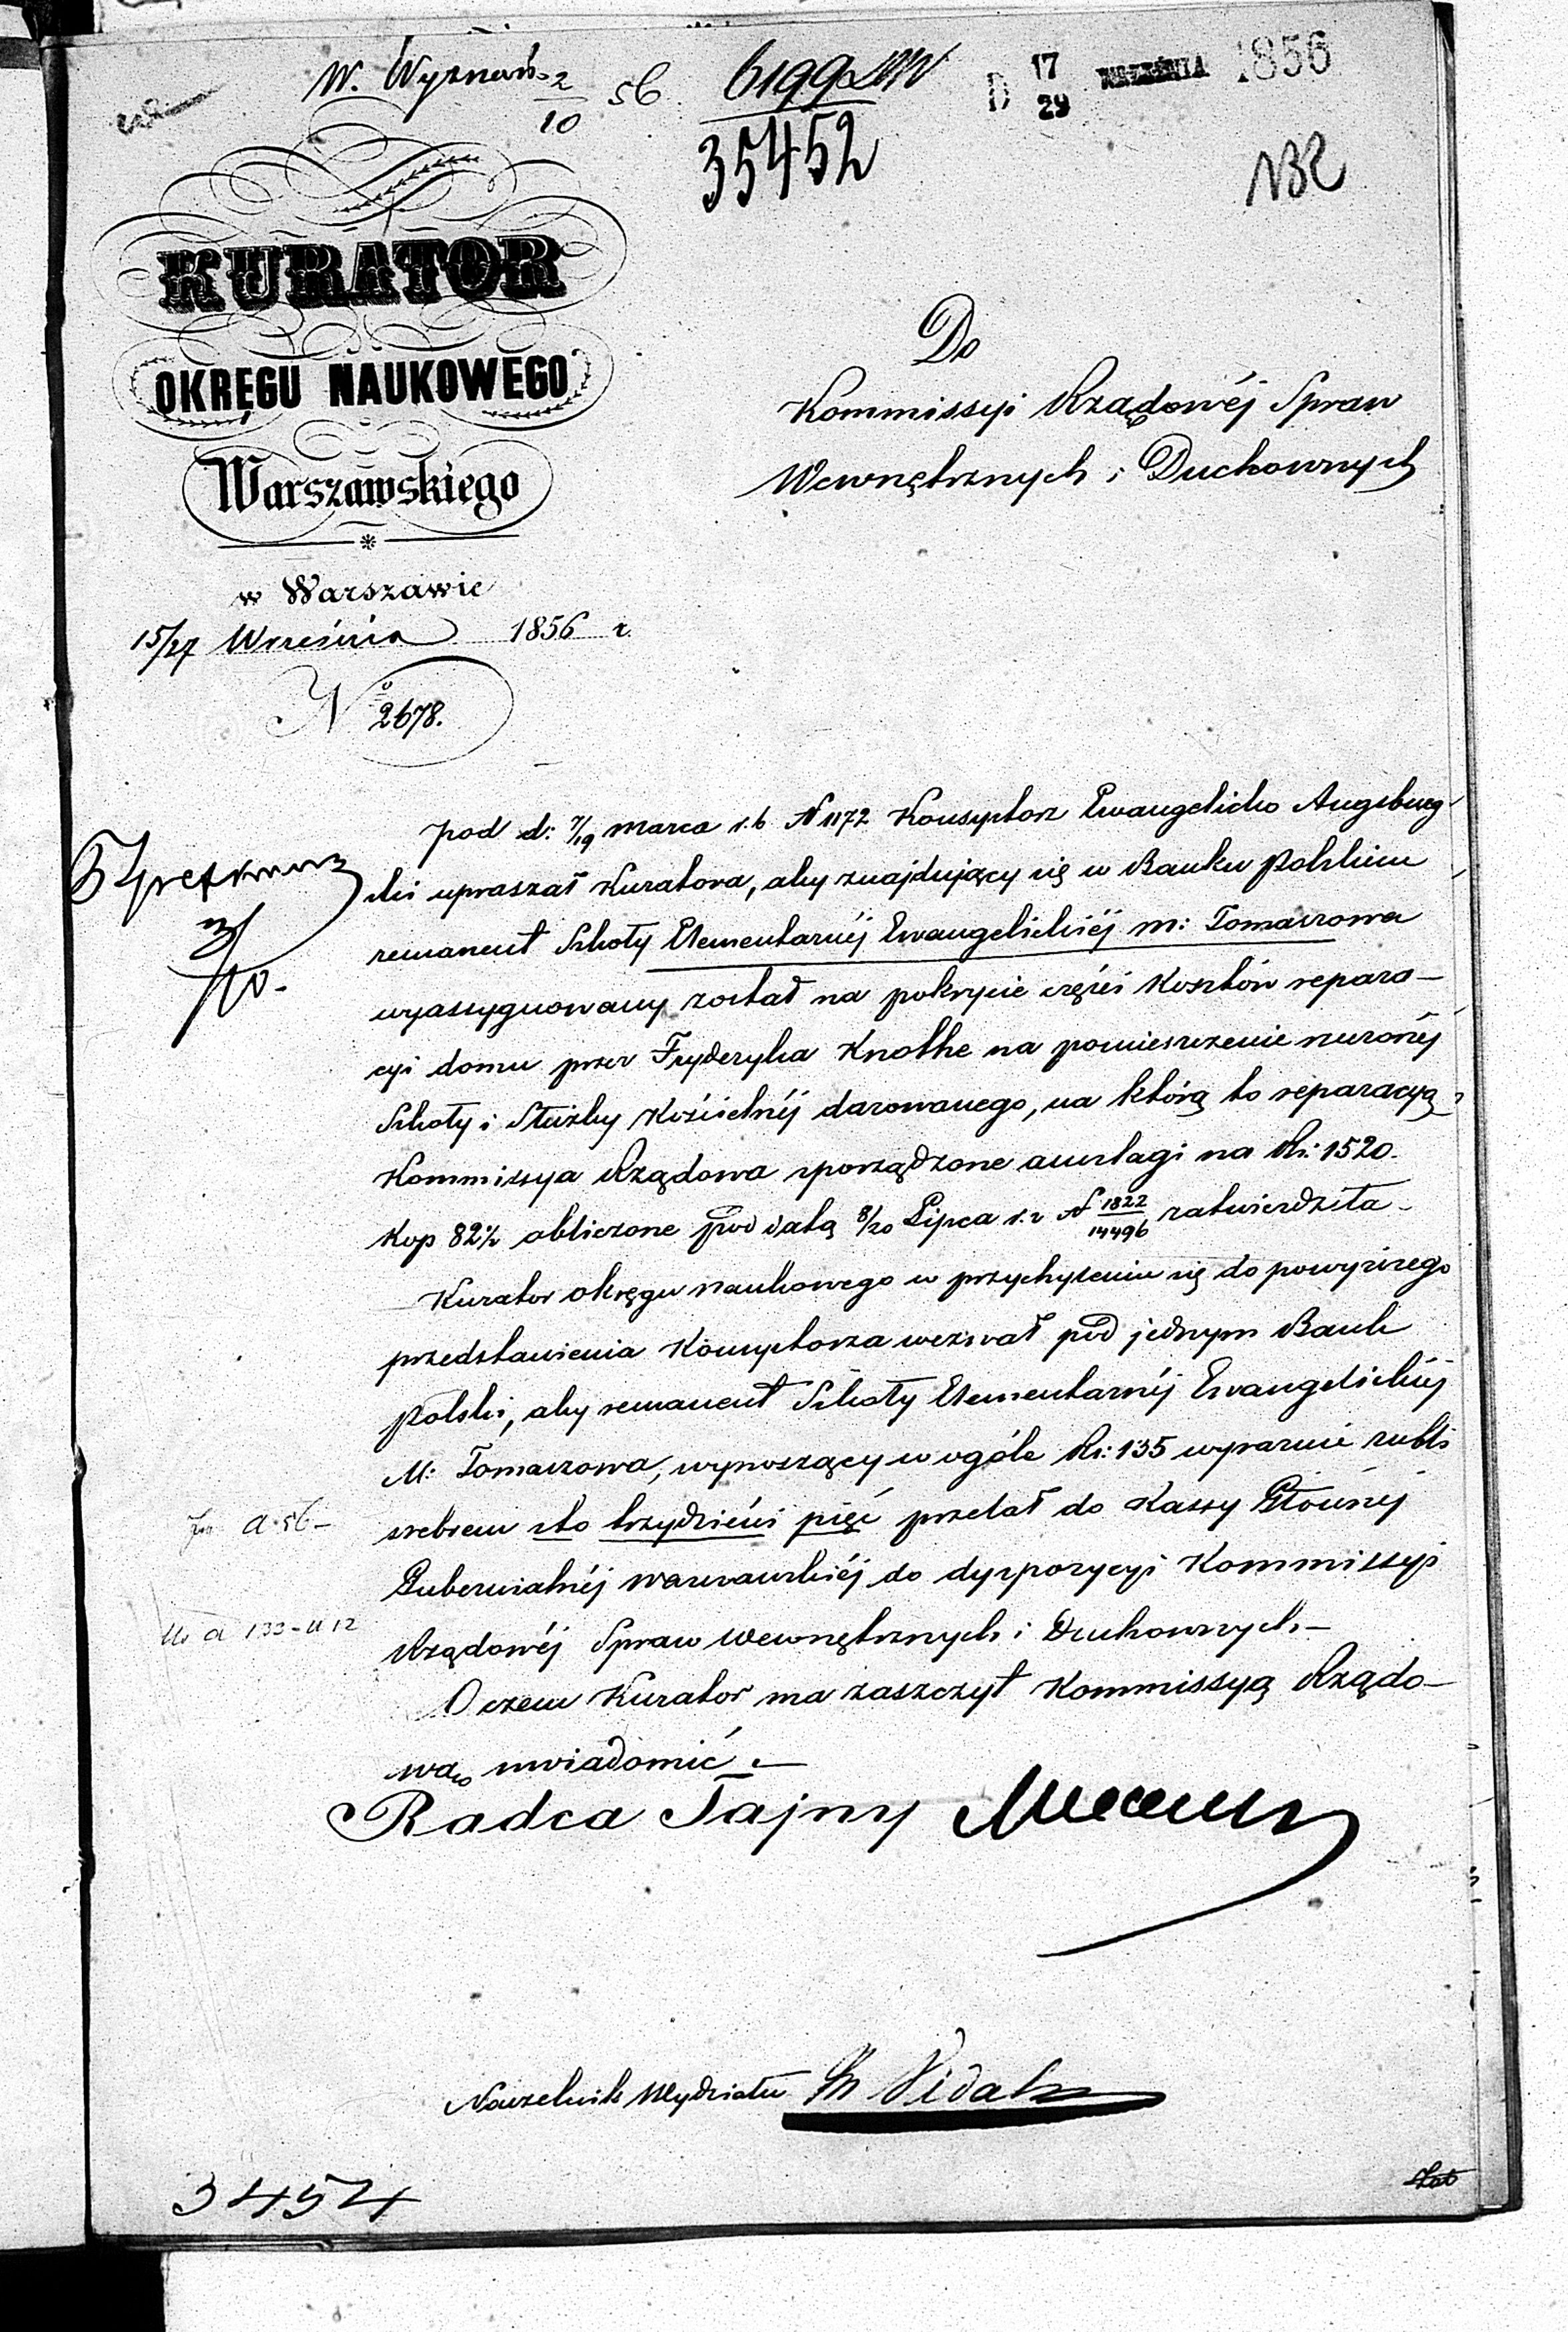 W. Wyznań 2/10 56
6199
35452
D 17/29 WRZEŚNIA 1856
132
KURATOR
OKRĘGU NAUKOWEGO
Warszawskiego
w Warszawie
15/27 Września 1856 r.
No 2678.
Do
Kommissyi Rządowéj Spraw
Wewnętrznych i Duchownych
pod d: 7/19 Marca r. b. N 1172 Konsystorz Ewangelicko Augsburg-
ski upraszał Kuratora, aby znajdujący się w Banku Polskim
remanent Szkoły Elementarnéj Ewangelickiéj m: Tomaszowa
wyassygnowany został na pokrycie części kosztów repara-
cyi domu przez Fryderyka Knothe na pomieszczenie rzeczonéj
Szkoły i Służby Kościelnéj darowanego, na którą to reparacyą
Kommissya Rządowa sporządzone anszlagi na Rs: 1520.
Kop 82½ obliczone pod datą 8/20 Lipca N 1822/14496 zatwierdziła.
Kurator okręgu naukowego w przychyleniu się do powyższego
przedstawienia Konsystorza wezwał pod jednym Bank
Polski, aby remanent Szkoły Elementarnéj Ewangelickiéj
M: Tomaszowa, wynoszący w ogóle Rs: 135 wyraźnie rubli
srebrem sto trzydzieści pięć przelał do Kassy Głównéj
Gubernialnéj Warszawskiéj do dyspozycyi Kommissyi
Rządowéj Spraw Wewnętrznych i Duchownych.-
O czem Kurator ma zaszczyt Kommissyą Rządo-
wą uwiadomić.-
Radca Tajny
Naczelnik Wydziału Vidal
3454